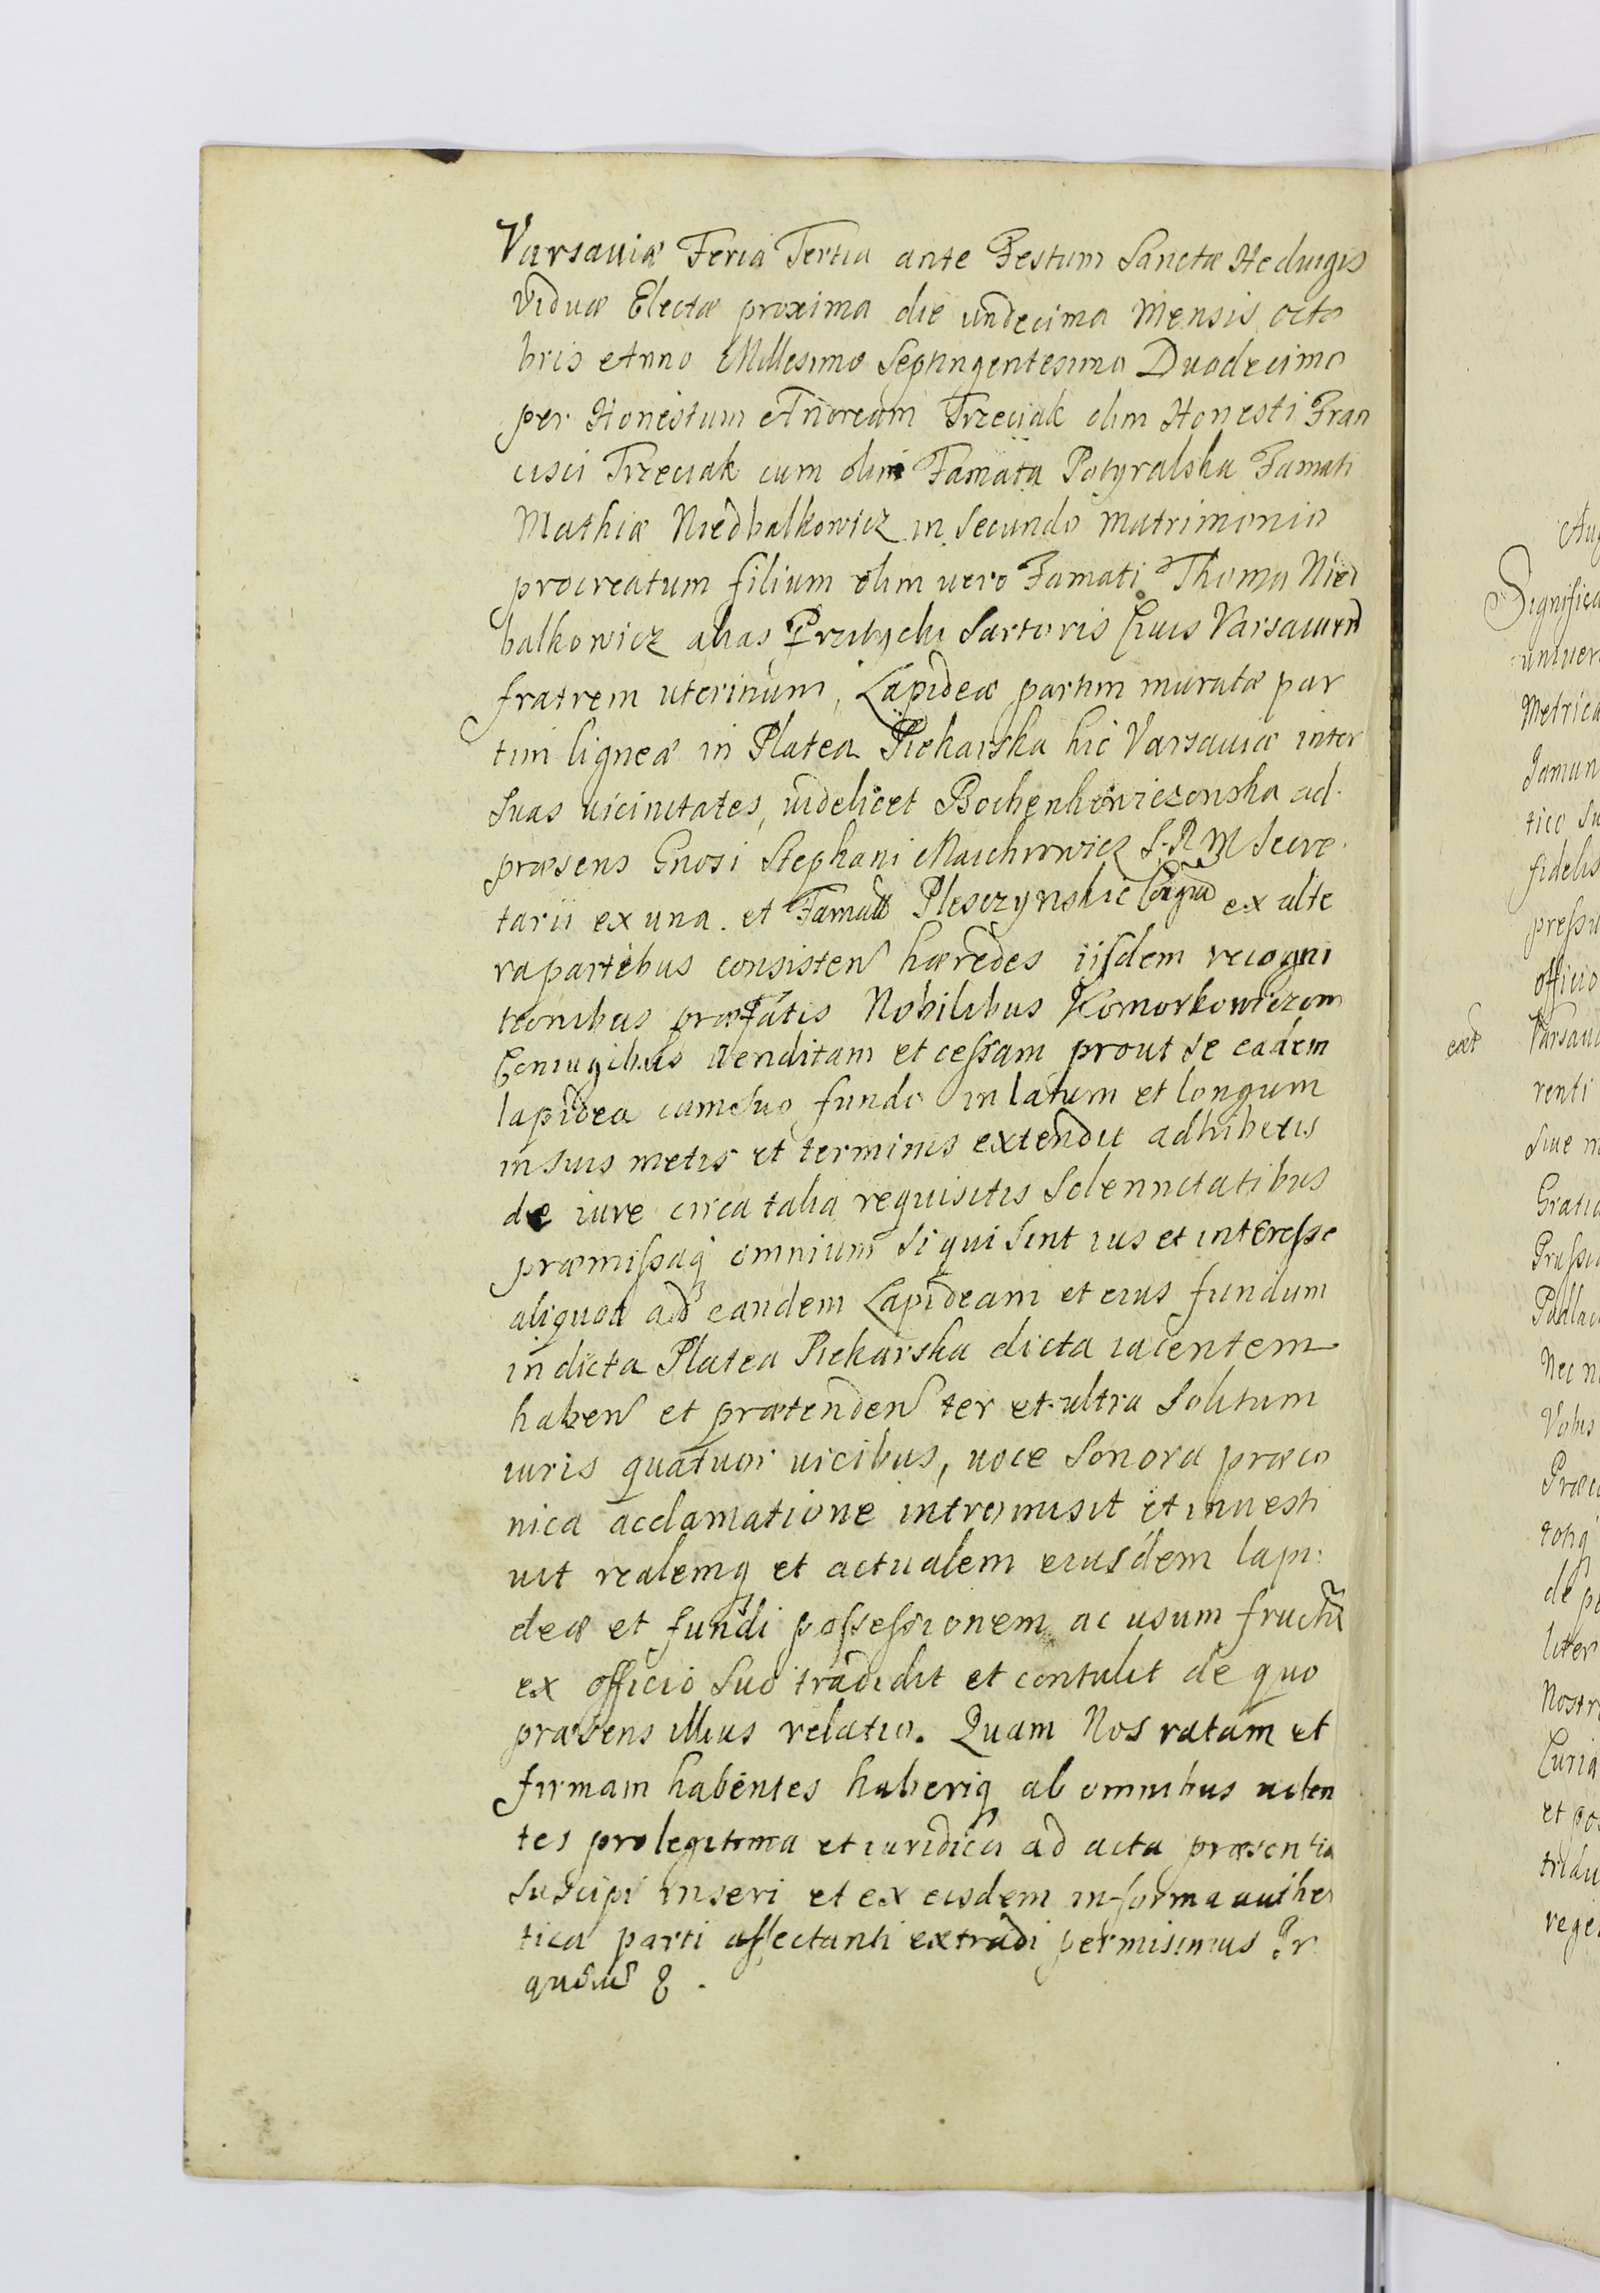 Varsaviæ Feria Tertia ante Festum Sanctæ Hedvigis
Viduæ Electæ proxima die undecima Mensis octo
bris Anno Millesimo Septingentesimo Duodecimo
per Honestum Andream Trzeciak olim Honesti Fran
cisci Trzeciak cum olim Famata Potyralska Famati
Mathiæ Niedbalkowicz in secundo matrimonio
procreatum filium olim vero Famati Thoma Nied
balkowicz alias Przybycki Sartoris Civis Varsavien
fratrem uterinum, Lapideæ partim muratæ par
tim ligneæ in Platea Piekarska hic Varsaviæ inter
suas vicinitates, videlicet Bochenkowiczonska ad
præsens Gnosi Stephani Marchiowicz S. R. M. Secre
tarii ex una. et Famata Plesczynskie ex alte
ra partibus consisten hæredes iisdem recogni
tionibus præfatis Nobilibus Komorkowiczom
Coniugibus venditam et cessam prout se eadem
lapidea cum suo fundo in latum et longum
in suis metis et terminis extendit adhibitis
de iure circa talia requisitis Solennitatibus
præmissaq omnium si qui sint ius et interesse
aliquod ad eandem Lapideam et eius fundum
in dicta Platea Piekarska dicta iacentem
haben et prætenden ter et ultra Solitum
iuris quatuor vicibus, voce Sonora præco
nica acclamatione intromisit et investi
vit realemq et actualem eiusdem lapi:
deæ et fundi possessionem ac usum fructũ
ex officio suo tradidit et contulit de quo
præsens illius relatio. Quam Nos ratam et
firmam habentes haberiq ab omnibus volen
tes pro legitima et iuridica ad acta præsentia
Suscipi inseri et ex eisdem in forma authen
tica parti affectanti extradi permisimus Pr

Aug
Significa
univer
Metrica
Jamun
tico Su
fidelis
pressu
officio
Varsavi
renti
Sive in
Gratia
Prussi
Podlac
Nec n
Vobis
Præci
totiq
de pe
liter
Nostr
Curia
et pos
tridu
rege